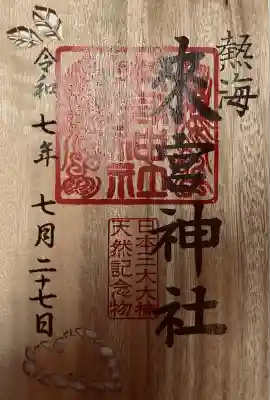 熱海
來宮神社
日本三大大楠
天然記念物
令和
七年
七月二十七日